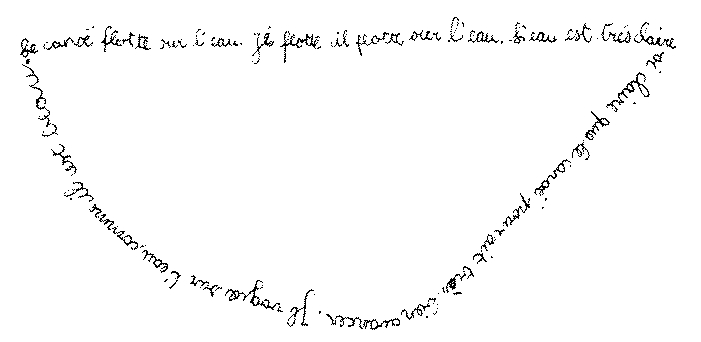 Le canoë flotte sur l'eau. Je flotte il flotte sur l'eau. L'eau est très claire
si claire que le canoë pourrait très bien avancer. Je vogue sur l'eau, comme il est